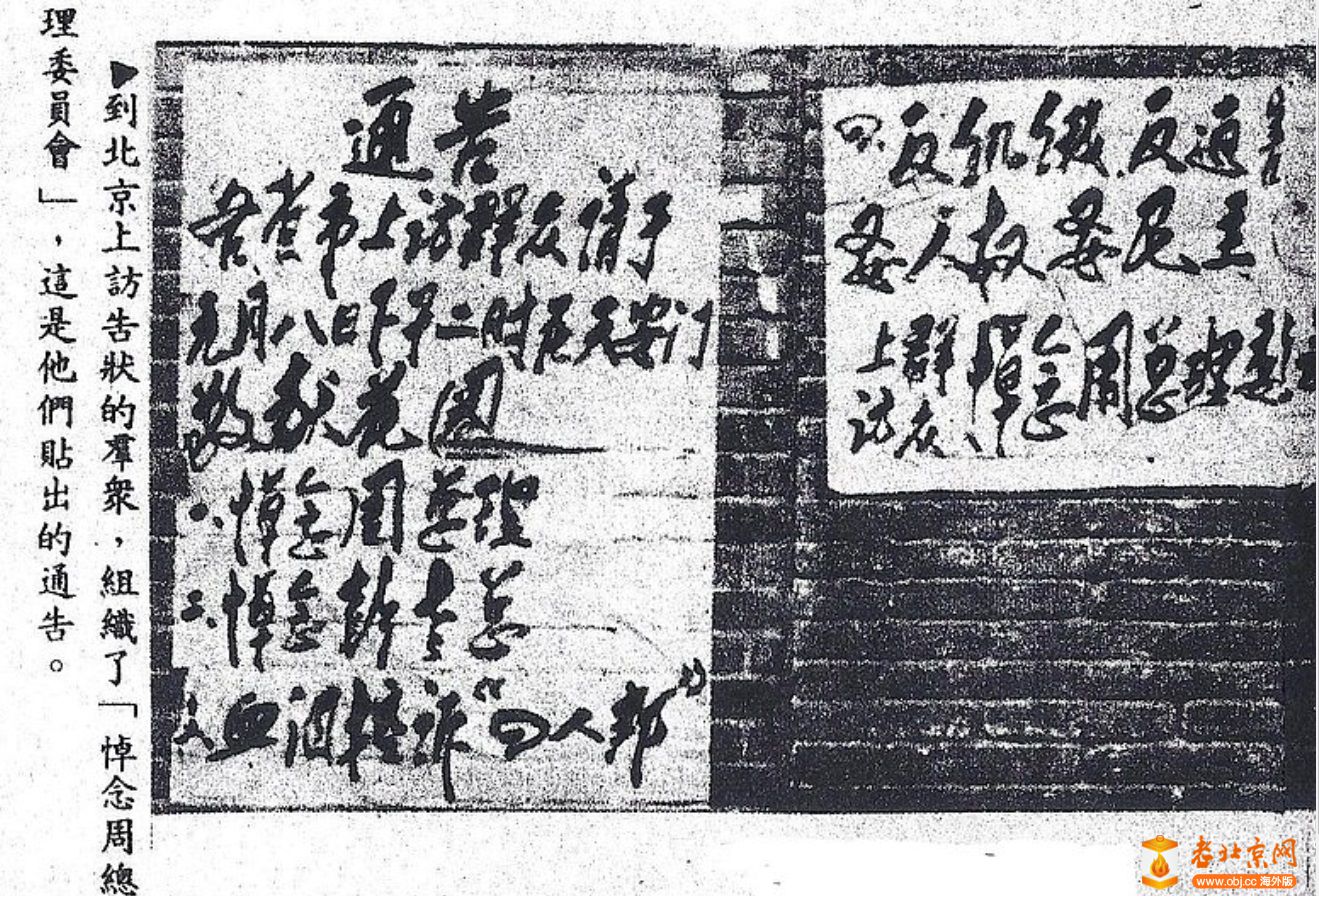 ▶到北京上訪告狀的羣衆，組織了「悼念周總
理委員會」，這是他們貼出的通告。
通告
各省市上访群众请于
元月八日下午二时在天安门
敬献花圈
一、悼念周总理
二、悼念彭老总
三、血泪控诉“四人邦”
四、反饥饿 反迫害
要人权 要民主
上访群众、悼念周总理彭
老北京网
www.obj.cc 海外版